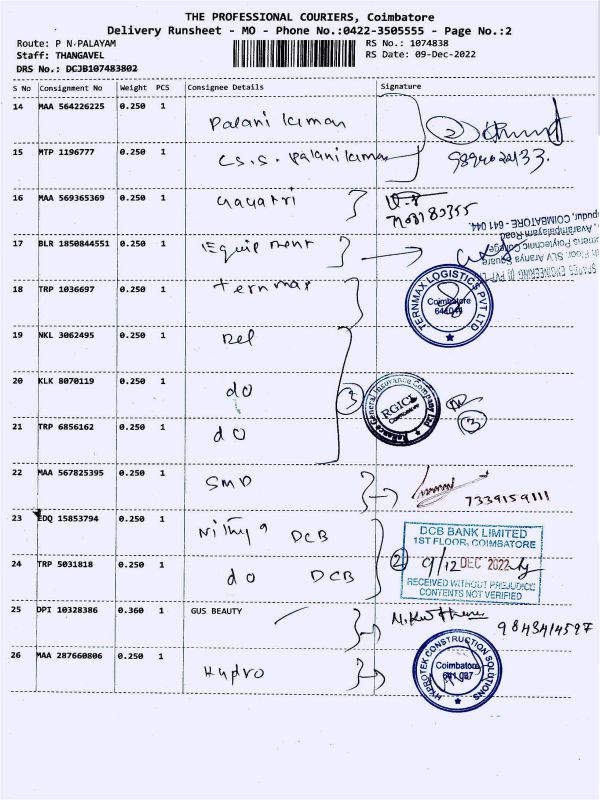 THE PROFESSIONAL COURIERS, Coimbatore
Delivery Runsheet - MO - Phone No.:0422-3505555 - Page No.:2
Route: P N-PALAYAM RS No.: 1074838
Staff: THANGAVEL RS Date: 09-Dec-2022
DRS No.: DCJB107483802
S No Consignment No Weight PCS Consignee Details Signature
14 MAA 564226225 0.250 1 Palani kumar 2
15 MTP 1196777 0.250 1 C.S.S. Palani kumar
16 MAA 569365369 0.250 1 Gayatri
17 BLR 1850844551 0.250 1 Equipment
COIMBATORE - 641 044.
18 TRP 1036697 0.250 1 ternmax
TERNMAX LOGISTICS PVT LTD
Coimbatore
641044
19 NKL 3062495 0.250 1 Rel
20 KLK 8070119 0.250 1 do 3
Reliance General Insurance Company Ltd
RGICL
3
21 TRP 6856162 0.250 1 do
22 MAA 567825395 0.250 1 SMD 7339159111
23 EDQ 15853794 0.250 1 Nithya DCB
DCB BANK LIMITED
1ST FLOOR, COIMBATORE
24 TRP 5031818 0.250 1 do DCB 2 9/12 DEC 2022
RECEIVED WITHOUT PREJUDICE
CONTENTS NOT VERIFIED
25 DPI 10328386 0.360 1 GUS BEAUTY 9843414597
26 MAA 287660806 0.250 1 Hydro
HYPROTEK CONSTRUCTION SOLUTIONS
Coimbatore
641 027